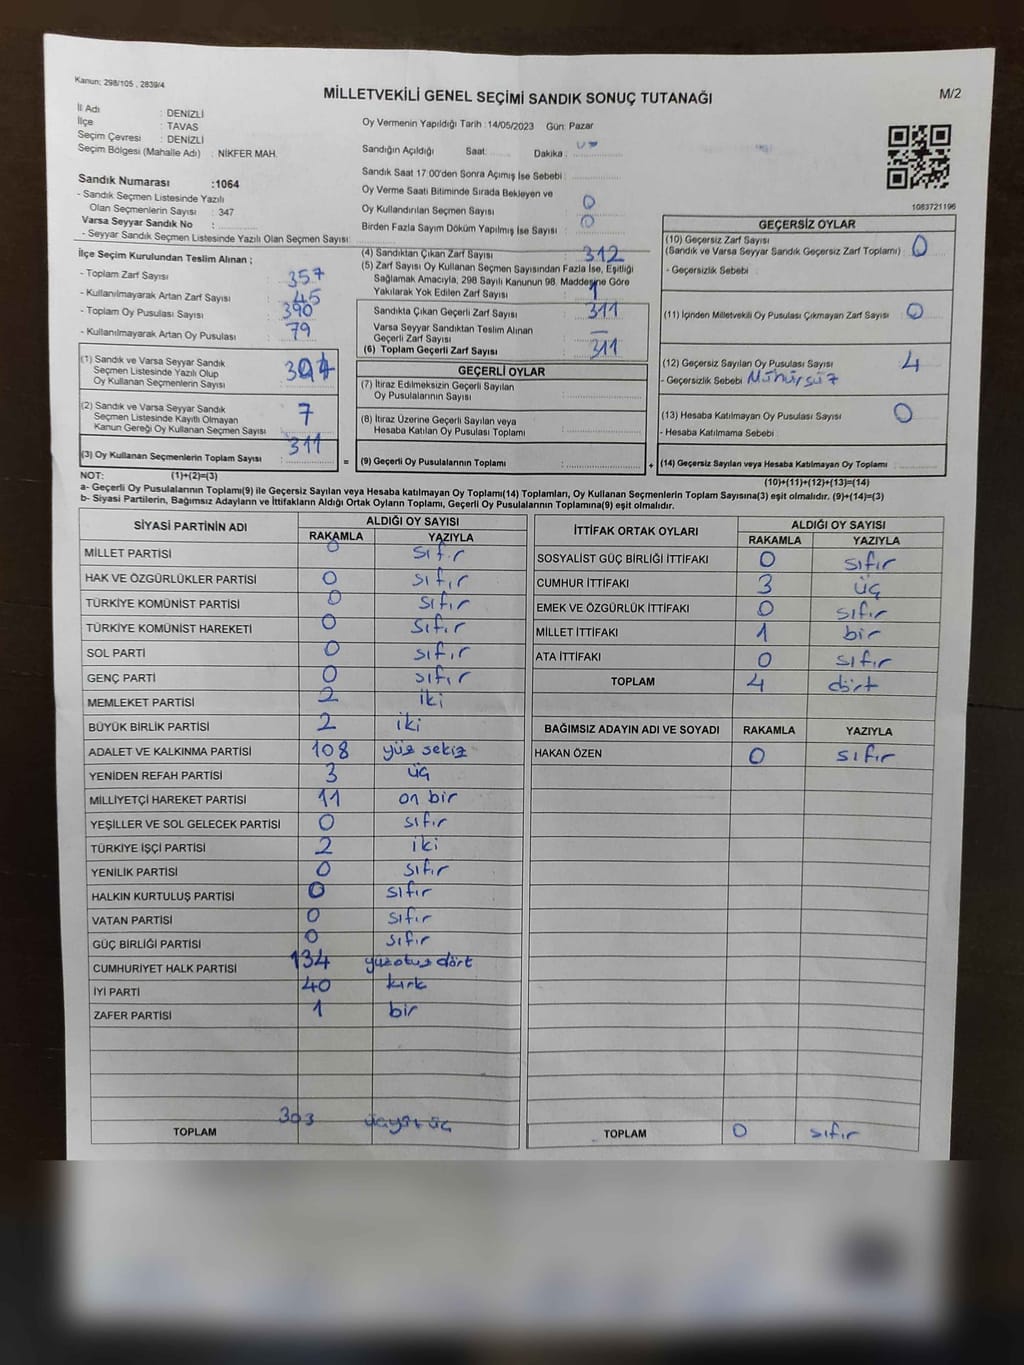 Kanun; 298/105 , 2839/4
MİLLETVEKİLİ GENEL SEÇİMİ SANDIK SONUÇ TUTANAĞI
M/2
İl Adı : DENİZLİ
İlçe : TAVAS
Seçim Çevresi : DENİZLİ
Seçim Bölgesi (Mahalle Adı) : NİKFER MAH.
Oy Vermenin Yapıldığı Tarih :14/05/2023 Gün: Pazar
Sandığın Açıldığı Saat: Dakika :
Sandık Saat 17:00'den Sonra Açımış İse Sebebi :
Oy Verme Saati Bitiminde Sırada Bekleyen ve
Oy Kullandırılan Seçmen Sayısı 0
Birden Fazla Sayım Döküm Yapılmış İse Sayısı : 0
1083721196
Sandık Numarası :1064
- Sandık Seçmen Listesinde Yazılı
Olan Seçmenlerin Sayısı : 347
Varsa Seyyar Sandık No :
- Seyyar Sandık Seçmen Listesinde Yazılı Olan Seçmen Sayısı:
İlçe Seçim Kurulundan Teslim Alınan ;
- Toplam Zarf Sayısı : 357
- Kullanılmayarak Artan Zarf Sayısı : 45
- Toplam Oy Pusulası Sayısı : 390
- Kullanılmayarak Artan Oy Pusulası : 79
(1) Sandık ve Varsa Seyyar Sandık
Seçmen Listesinde Yazılı Olup
Oy Kullanan Seçmenlerin Sayısı :
(2) Sandık ve Varsa Seyyar Sandık
Seçmen Listesinde Kayıtlı Olmayan
Kanun Gereği Oy Kullanan Seçmen Sayısı : 7
(3) Oy Kullanan Seçmenlerin Toplam Sayısı : 311
(4) Sandıktan Çıkan Zarf Sayısı : 312
(5) Zarf Sayısı Oy Kullanan Seçmen Sayısından Fazla İse, Eşitliği
Sağlamak Amacıyla; 298 Sayılı Kanunun 98. Maddesine Göre
Yakılarak Yok Edilen Zarf Sayısı : 1
Sandıkta Çıkan Geçerli Zarf Sayısı : 311
Varsa Seyyar Sandıktan Teslim Alınan
Geçerli Zarf Sayısı : —
(6) Toplam Geçerli Zarf Sayısı : 311
GEÇERLİ OYLAR
(7) İtiraz Edilmeksizin Geçerli Sayılan
Oy Pusulalarının Sayısı :
(8) İtiraz Üzerine Geçerli Sayılan veya
Hesaba Katılan Oy Pusulası Toplamı :
= (9) Geçerli Oy Pusulalarının Toplamı :
GEÇERSİZ OYLAR
(10) Geçersiz Zarf Sayısı
(Sandık ve Varsa Seyyar Sandık Geçersiz Zarf Toplamı) : 0
- Geçersizlik Sebebi :
(11) İçinden Milletvekili Oy Pusulası Çıkmayan Zarf Sayısı : 0
(12) Geçersiz Sayılan Oy Pusulası Sayısı : 4
- Geçersizlik Sebebi Mühürsüz
(13) Hesaba Katılmayan Oy Pusulası Sayısı : 0
- Hesaba Katılmama Sebebi :
+ (14) Geçersiz Sayılan veya Hesaba Katılmayan Oy Toplamı :
NOT: (1)+(2)=(3)
(10)+(11)+(12)+(13)=(14)
a- Geçerli Oy Pusulalarının Toplamı(9) ile Geçersiz Sayılan veya Hesaba katılmayan Oy Toplamı(14) Toplamları, Oy Kullanan Seçmenlerin Toplam Sayısına(3) eşit olmalıdır. (9)+(14)=(3)
b- Siyasi Partilerin, Bağımsız Adayların ve İttifakların Aldığı Ortak Oyların Toplamı, Geçerli Oy Pusulalarının Toplamına(9) eşit olmalıdır.
SİYASİ PARTİNİN ADI ALDIĞI OY SAYISI
RAKAMLA YAZIYLA
MİLLET PARTİSİ 0 sıfır
HAK VE ÖZGÜRLÜKLER PARTİSİ 0 sıfır
TÜRKİYE KOMÜNİST PARTİSİ 0 sıfır
TÜRKİYE KOMÜNİST HAREKETİ 0 sıfır
SOL PARTİ 0 sıfır
GENÇ PARTİ 0 sıfır
MEMLEKET PARTİSİ 2 iki
BÜYÜK BİRLİK PARTİSİ 2 iki
ADALET VE KALKINMA PARTİSİ 108 yüz sekiz
YENİDEN REFAH PARTİSİ 3 üç
MİLLİYETÇİ HAREKET PARTİSİ 11 on bir
YEŞİLLER VE SOL GELECEK PARTİSİ 0 sıfır
TÜRKİYE İŞÇİ PARTİSİ 2 iki
YENİLİK PARTİSİ 0 sıfır
HALKIN KURTULUŞ PARTİSİ 0 sıfır
VATAN PARTİSİ 0 sıfır
GÜÇ BİRLİĞİ PARTİSİ 0 sıfır
CUMHURİYET HALK PARTİSİ 134 yüzotuz dört
İYİ PARTİ 40 kırk
ZAFER PARTİSİ 1 bir
TOPLAM 303 üçyüz üç
İTTİFAK ORTAK OYLARI ALDIĞI OY SAYISI
RAKAMLA YAZIYLA
SOSYALİST GÜÇ BİRLİĞİ İTTİFAKI 0 sıfır
CUMHUR İTTİFAKI 3 üç
EMEK VE ÖZGÜRLÜK İTTİFAKI 0 sıfır
MİLLET İTTİFAKI 1 bir
ATA İTTİFAKI 0 sıfır
TOPLAM 4 dört
BAĞIMSIZ ADAYIN ADI VE SOYADI RAKAMLA YAZIYLA
HAKAN ÖZEN 0 sıfır
TOPLAM 0 sıfır